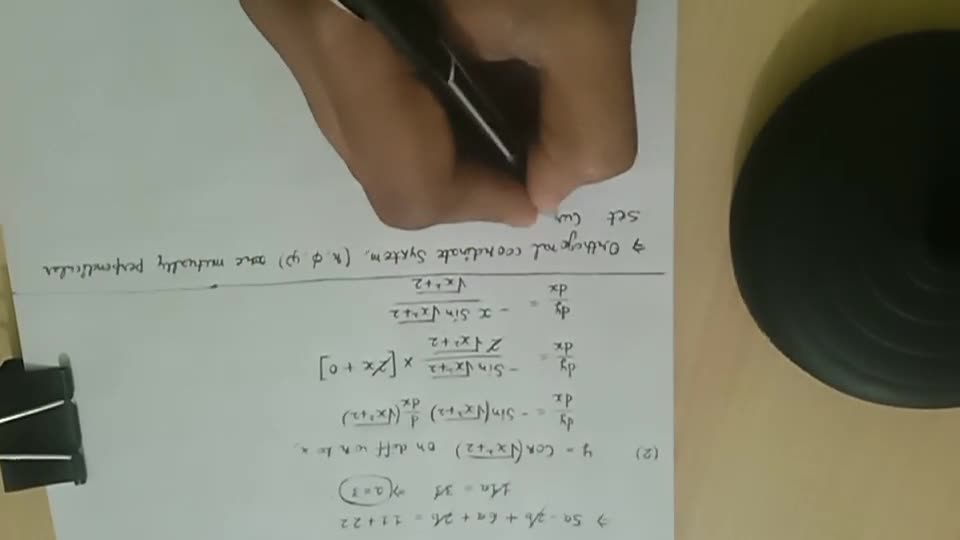 ⇒ 5a - 2b + 6a + 2b = 11 + 22
11a = 33 ⇒ a = 3
(2) y = Cos(√x²+2) on diff w.r. to x,
dy/dx = - Sin(√x²+2) d/dx (√x²+2)
dy/dx = - Sin√x²+2 / 2√x²+2 × [2x + 0]
dy/dx = - x Sin√x²+2 / √x²+2
→ Orthogonal coordinate System, (r, φ, ψ) are mutually perpendicular
Set Cur